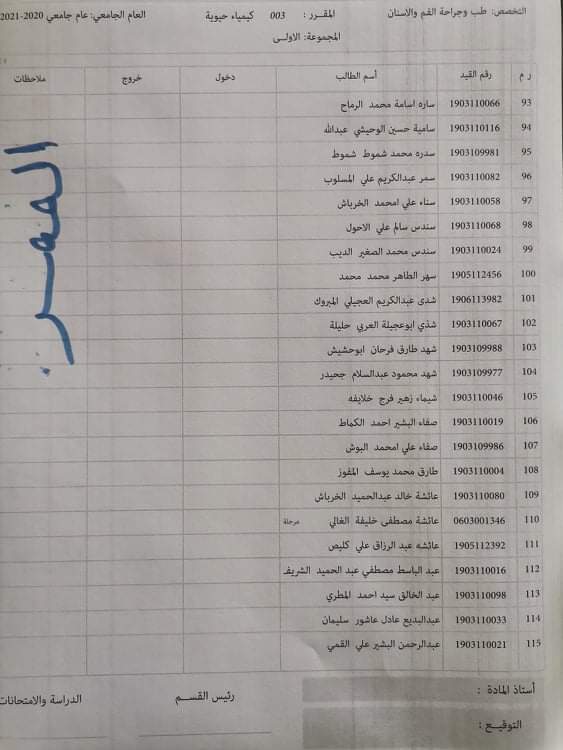 التخصص: طب وجراحة الفم والاسنان المقرر : 003 كيمياء حيوية العام الجامعي: عام جامعي 2020-2021
المجموعة: الاولى
ر م رقم القيد أسم الطالب دخول خروج ملاحظات
93 1903110066 ساره اسامة محمد الرماح
94 1903110116 سامية حسين الوحيشي عبدالله
95 1903109981 سدره محمد شموط شموط
96 1903110082 سمر عبدالكريم علي المسلوب
97 1903110058 سناء علي امحمد الخرباش
98 1903110068 سندس سالم علي الاحول
99 1903110024 سندس محمد الصغير الديب
100 1905112456 سهر الطاهر محمد محمد
101 1906113982 شدى عبدالكريم العجيلي المبروك
102 1903110067 شذي ابوعجيلة العربي حليلة
103 1903109988 شهد طارق فرحان ابوحشيش
104 1903109977 شهد محمود عبدالسلام جحيدر
105 1903110046 شيماء زهير فرج خلايفه
106 1903110019 صفاء البشير احمد الكماط
107 1903109986 صفاء علي امحمد البوش
108 1903110004 طارق محمد يوسف المقوز
109 1903110080 عائشة خالد عبدالحميد الخرباش
110 0603001346 عائشة مصطفى خليفة الغالي مرحلة
111 1905112392 عائشه عبد الرزاق علي كليص
112 1903110016 عبد الباسط مصطفي عبد الحميد الشريف
113 1903110098 عبد الخالق سيد احمد المطري
114 1903110033 عبدالبديع عادل عاشور سليمان
115 1903110021 عبدالرحمن البشير علي القمي
أستاذ المادة : رئيس القسم الدراسة والامتحانات
التوقيع :